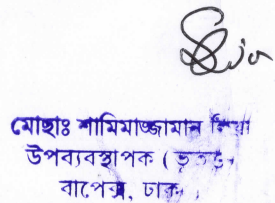 মোহাঃ শামিমাজ্জামান
উপব্যবস্থাপক (
বাপেক্স, ঢাকা